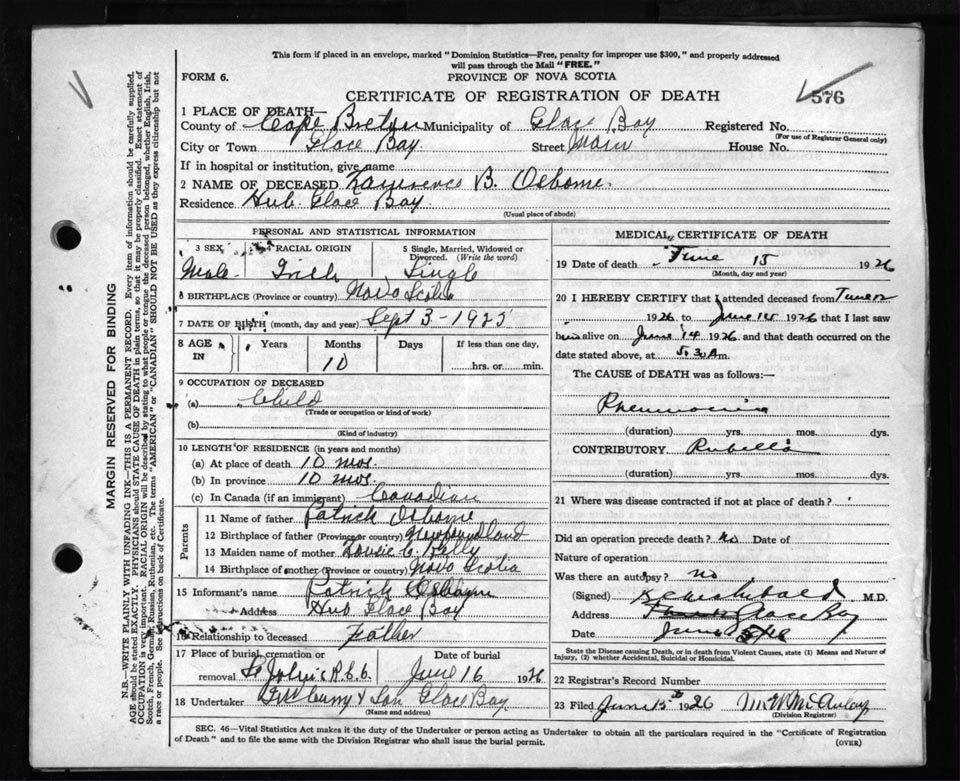 This form if placed in an envelope, marked "Dominion Statistics—Free, penalty for improper use $300," and properly addressed
will pass through the Mail "FREE."
FORM 6.
PROVINCE OF NOVA SCOTIA
CERTIFICATE OF REGISTRATION OF DEATH
576
1 PLACE OF DEATH—
County of Cape Breton Municipality of Glace Bay Registered No.
(For use of Registrar General only)
City or Town Glace Bay. Street Main House No.
If in hospital or institution, give name
2 NAME OF DECEASED Lawrence B. Osborne.
Residence Hub. Glace Bay
(Usual place of abode)
PERSONAL AND STATISTICAL INFORMATION
3 SEX 4 RACIAL ORIGIN 5 Single, Married, Widowed or
Divorced. (Write the word)
Male- Irish Single
6 BIRTHPLACE (Province or country) Nova Scotia
7 DATE OF BIRTH (month, day and year) Sept 3-1925
8 AGE IN Years Months Days If less than one day,
10 hrs. or min.
9 OCCUPATION OF DECEASED
(a) Child
(Trade or occupation or kind of work)
(b)
(Kind of industry)
10 LENGTH OF RESIDENCE (in years and months)
(a) At place of death 10 mos.
(b) In province 10 mos.
(c) In Canada (if an immigrant) Canadian
Parents
11 Name of father Patrick Osborne
12 Birthplace of father (Province or country) Newfoundland
13 Maiden name of mother Kelly
14 Birthplace of mother (Province or country) Nova Scotia
15 Informant's name Patrick Osborne
Address Hub Glace Bay
16 Relationship to deceased Father
17 Place of burial, cremation or Date of burial
removal St John's June 16 1926
18 Undertaker & Son Glace Bay.
(Name and address)
MEDICAL CERTIFICATE OF DEATH
19 Date of death June 15 1926
(Month, day and year)
20 I HEREBY CERTIFY that I attended deceased from June 12
1926 to June 15 1926 that I last saw
him alive on June 14 1926 and that death occurred on the
date stated above, at 5.30 A m.
The CAUSE OF DEATH was as follows:—
Pneumonia
(duration) yrs. mos. dys.
CONTRIBUTORY. Rubella
(duration) yrs. mos. dys.
21 Where was disease contracted if not at place of death?
Did an operation precede death? No Date of
Nature of operation
Was there an autopsy? no
(Signed) Archibald M.D.
Address Glace Bay
Date June
State the Disease causing Death, or in death from Violent Causes, state (1) Means and Nature of
Injury, (2) whether Accidental, Suicidal or Homicidal.
22 Registrar's Record Number
23 Filed June 15th 1926 M W McAulay
(Division Registrar)
SEC. 46—Vital Statistics Act makes it the duty of the Undertaker or person acting as Undertaker to obtain all the particulars required in the "Certificate of Registration
of Death" and to file the same with the Division Registrar who shall issue the burial permit.
(OVER)
MARGIN RESERVED FOR BINDING
N.B.—WRITE PLAINLY WITH UNFADING INK—THIS IS A PERMANENT RECORD. Every item of information should be carefully supplied.
AGE should be stated EXACTLY. PHYSICIANS should STATE CAUSE OF DEATH in plain terms, so that it may be properly classified. Exact statement of
OCCUPATION is very important. RACIAL ORIGIN will be described by stating to what people or tongue the deceased person belonged, whether English, Irish,
Scotch, French, German, Russian, Ruthenian, etc. The terms "AMERICAN" or "CANADIAN" SHOULD NOT BE USED as they express citizenship but not
a race or people. See instructions on back of Certificate.